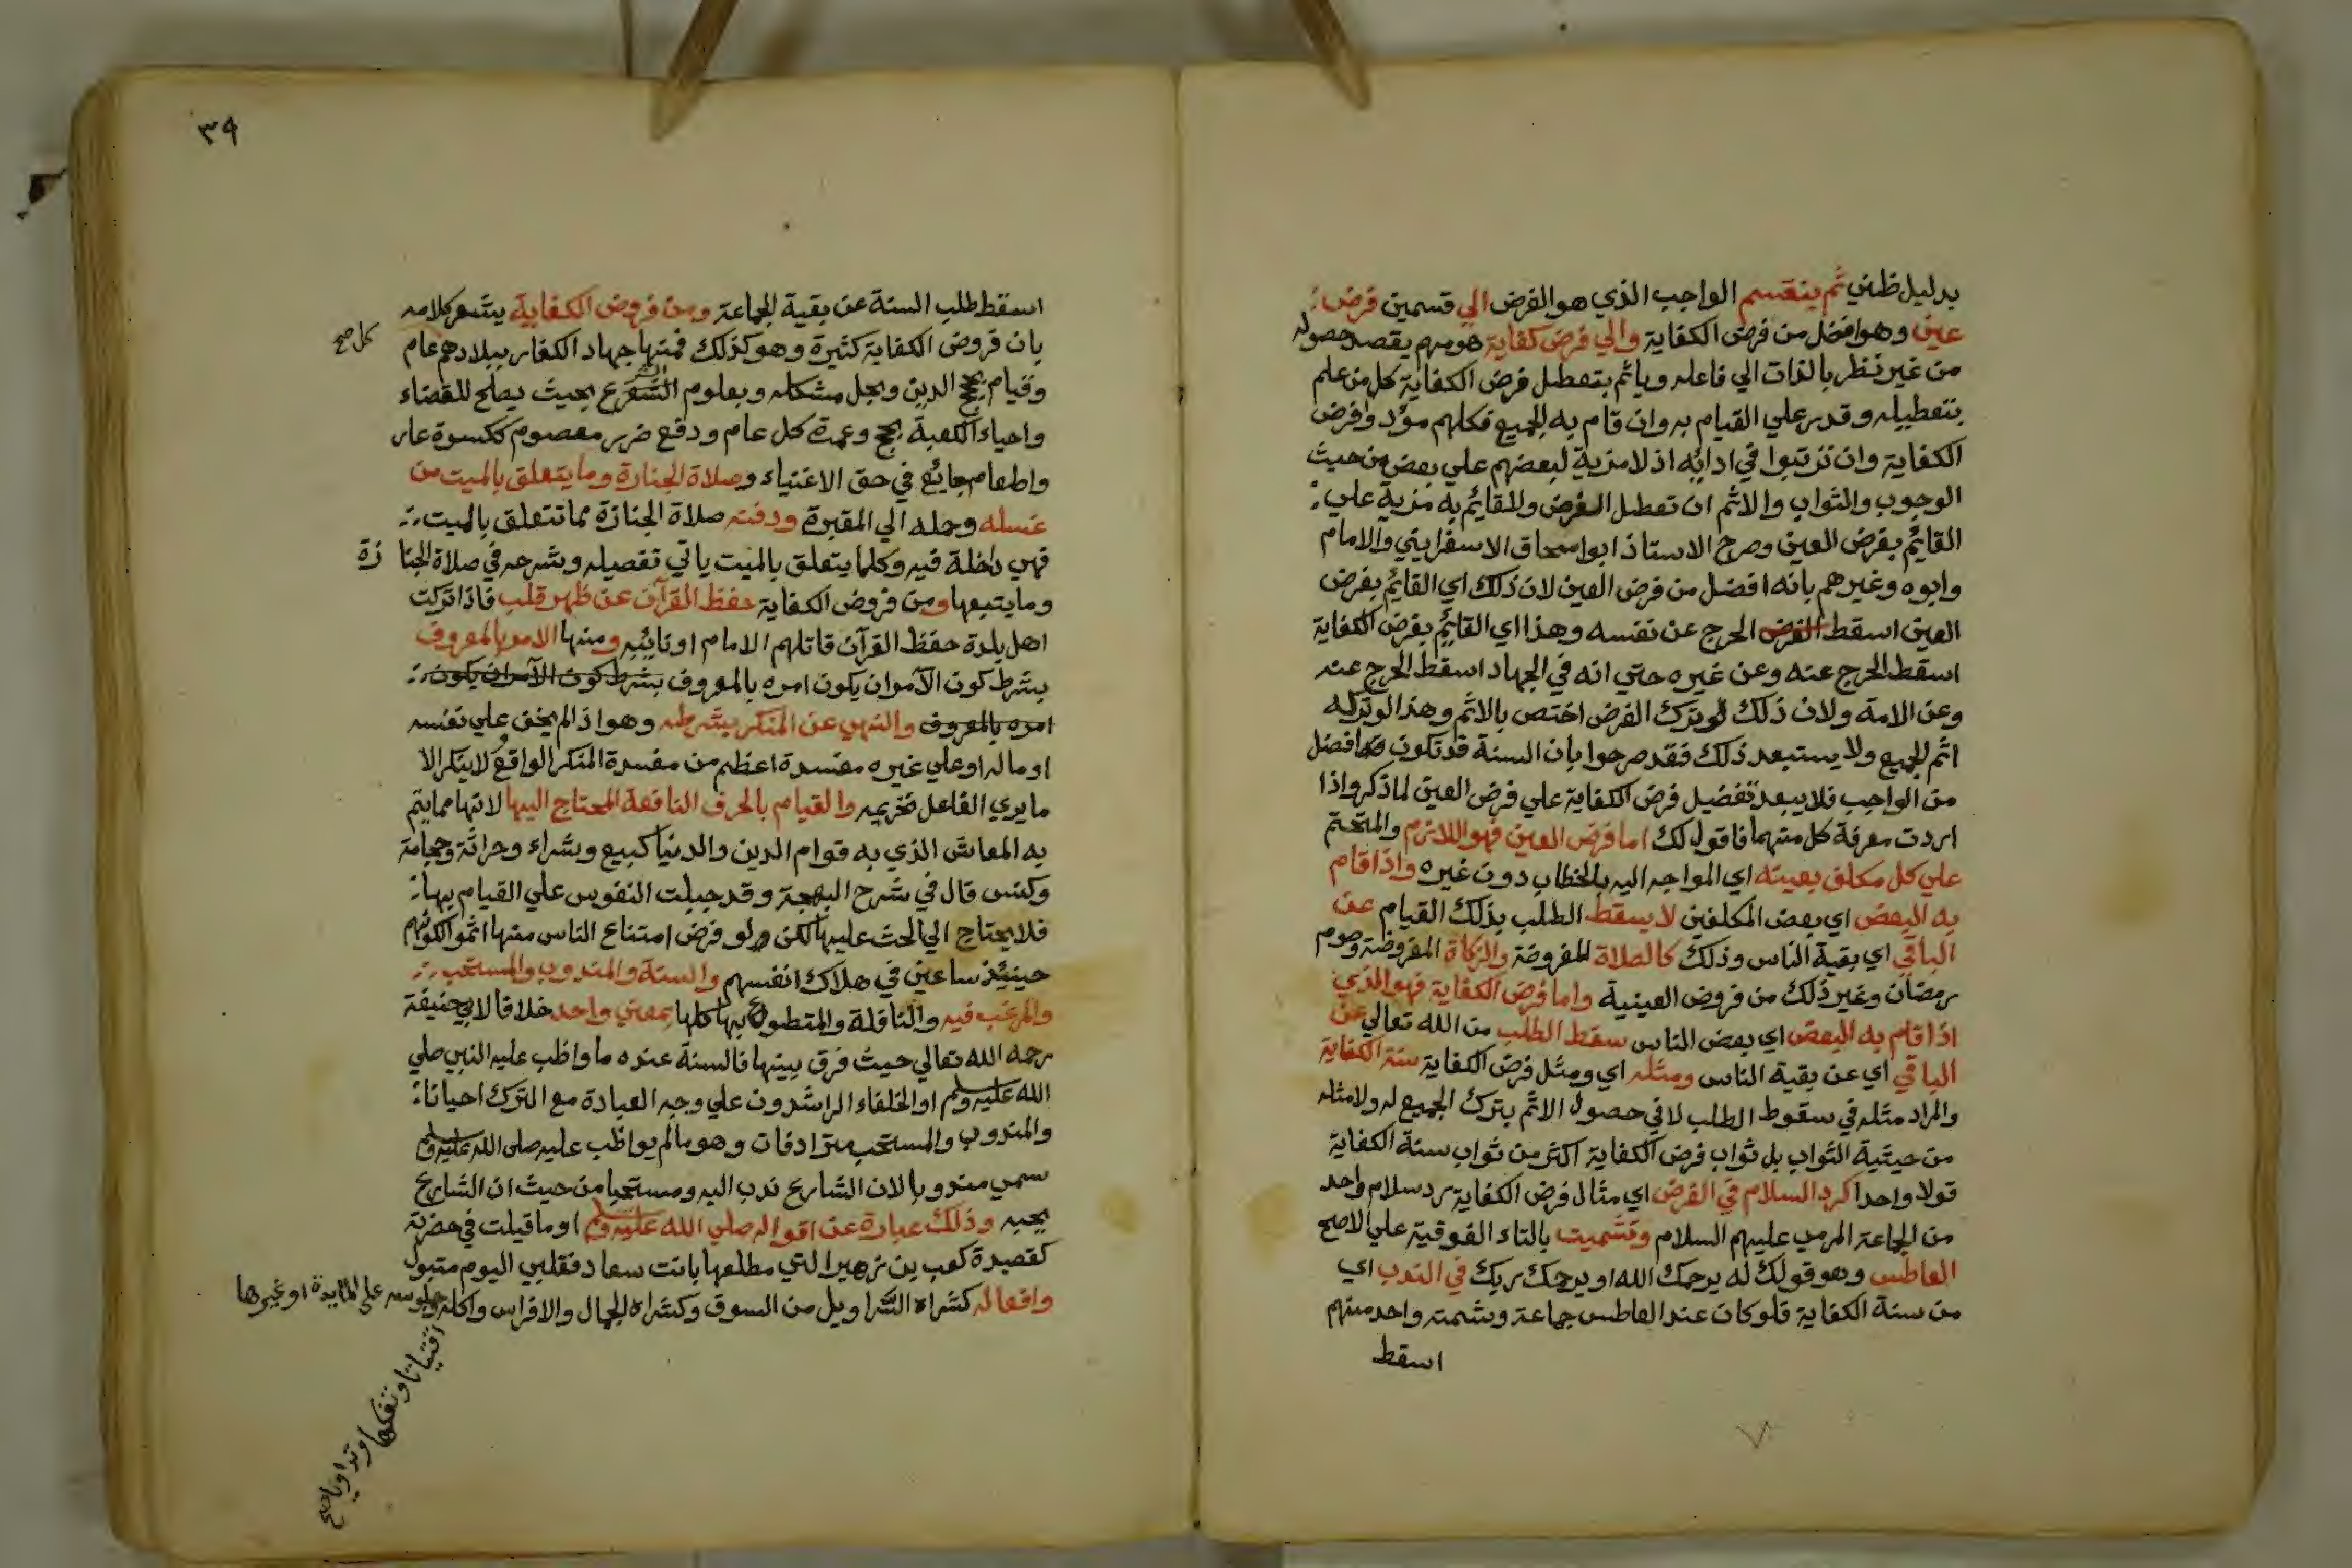 بدليل ظني ثم ينقسم الواجب الذي هو الفرض الي قسمين فرض
عين وهو افضل من فرض الكفاية والي فرض كفاية هو مهم يقصد حصوله
من غير نظر بالذات الي فاعله وياثم بتعطل فرض الكفاية كل من علم
بتعطيله وقدر علي القيام به وان قام به الجميع فكلهم مؤد وفرض
الكفاية وان ترتبوا في ادائه اذ لا مزية لبعضهم علي بعض من حيث
الوجوب والثواب والاثم ان تعطل الفرض وللقايم به مزية علي
القايم بفرض العين وصرح الاستاذ ابو اسحاق الاسفرايني والامام
وابوه وغيرهم بانه افضل من فرض العين لان ذلك اي القايم بفرض
العين اسقط الفرض الحرج عن نفسه وهذا اي القايم بفرض الكفاية
اسقط الحرج عنه وعن غيره حتي انه في الجهاد اسقط الحرج عنه
وعن الامة ولان ذلك لو ترك الفرض اختص بالاثم وهذا لو تركه
اثم الجميع ولا يستبعد ذلك فقد صرحوا بان السنة قد تكون افضل
من الواجب فلا يبعد تفضيل فرض الكفاية علي فرض العين لما ذكر واذا
اردت معرفة كل منهما فاقول لك اما فرض العين فهو اللازم والمتحتم
علي كل مكلف بعينه اي المواجه اليه بالخطاب دون غيره واذا قام
به البعض اي بعض المكلفين لا يسقط الطلب بذلك القيام عن
الباقي اي بقية الناس وذلك كالصلاة المفروضة والزكاة المفروضة وصوم
رمضان وغير ذلك من فروض العينية واما فرض الكفاية فهو الذي
اذا قام به البعض اي بعض الناس سقط الطلب من الله تعالي عن
الباقي اي عن بقية الناس ومثله اي ومثل فرض الكفاية سنة الكفاية
والمراد مثله في سقوط الطلب لا في حصول الاثم بترك الجميع له ولا مثله
من حيثية الثواب بل ثواب فرض الكفاية اكثر من ثواب سنة الكفاية
قولا واحدا كرد السلام في الفرض اي مثال فرض الكفاية رد سلام واحد
من الجماعة المرمي عليهم السلام وتشميت بالتاء الفوقية علي الاصح
العاطس وهو قولك له يرحمك الله او يرحمك ربك في الندب اي
من سنة الكفاية فلو كان عند العاطس جماعة وشمته واحد منهم
اسقط
٣٩
اسقط طلب السنة عن بقية الجماعة ومن فروض الكفاية يشعر كلامه
بان فروض الكفاية كثيرة وهو كذلك فمنها جهاد الكفار ببلادهم عام
كل صح
وقيام بحجج الدين وبحل مشكله وبعلوم الشرع بحيث يصلح للقضاء
واحياء الكعبة بحج وعمرة كل عام ودفع ضرر معصوم ككسوة عار
واطعام جايع في حق الاغنياء وصلاة الجنازة وما يتعلق بالميت من
غسله وحمله الي المقبرة ودفنه صلاة الجنازة مما تتعلق بالميت
فهي داخلة فيه وكلما يتعلق بالميت ياتي تفصيله وشرحه في صلاة الجنازة
وما يتبعها ومن فروض الكفاية حفظ القرآن عن ظهر قلب فاذا تركت
اهل بلدة حفظ القرآن قاتلهم الامام او نائبه ومنها الامر بالمعروف
بشرط كون الآمر ان يكون امره بالمعروف بشرط كون الآمر ان يكون
امره بالمعروف والنهي عن المنكر بشرطه وهو اذا لم يخف علي نفسه
او ماله او علي غيره مفسدة اعظم من مفسدة المنكر الواقع ولا ينكر الا
ما يري الفاعل تحريمه والقيام بالحرف النافعة المحتاج اليها لانها مما يتم
به المعاش الذي به قوام الدين والدنيا كبيع وشراء وحراثة وحجامة
وكنس قال في شرح البهجة وقد جبلت النفوس علي القيام بها
فلا يحتاج الي الحث عليها لكن ولو فرض امتناع الناس منها اثموا لكونهم
حينيذ ساعين في هلاك انفسهم والسنة والمندوب والمستحب
والمرغب فيه والنافلة والمتطوع بها كلها بمعني واحد خلافا لابي حنيفة
رحمه الله تعالي حيث فرق بينها فالسنة عنده ما واظب عليه النبي صلي
الله عليه وسلم او الخلفاء الراشدون علي وجه العبادة مع الترك احيانا
والمندوب والمستحب مترادفان وهو ما لم يواظب عليه صلى الله عليه وسلم
سمي مندوبا لان الشارع ندب اليه ومستحبا من حيث ان الشارع
يحبه وذلك عبارة عن اقواله صلي الله عليه وسلم او ما قيلت في حضرته
كقصيدة كعب بن زهير التي مطلعها بانت سعاد فقلبي اليوم متبول
وافعاله كشراء السراويل من السوق وكشراء الجمال والافراس واكله وجلوسه علي المايدة او غيرها
اقتياتا وتفكها وتداويا صح